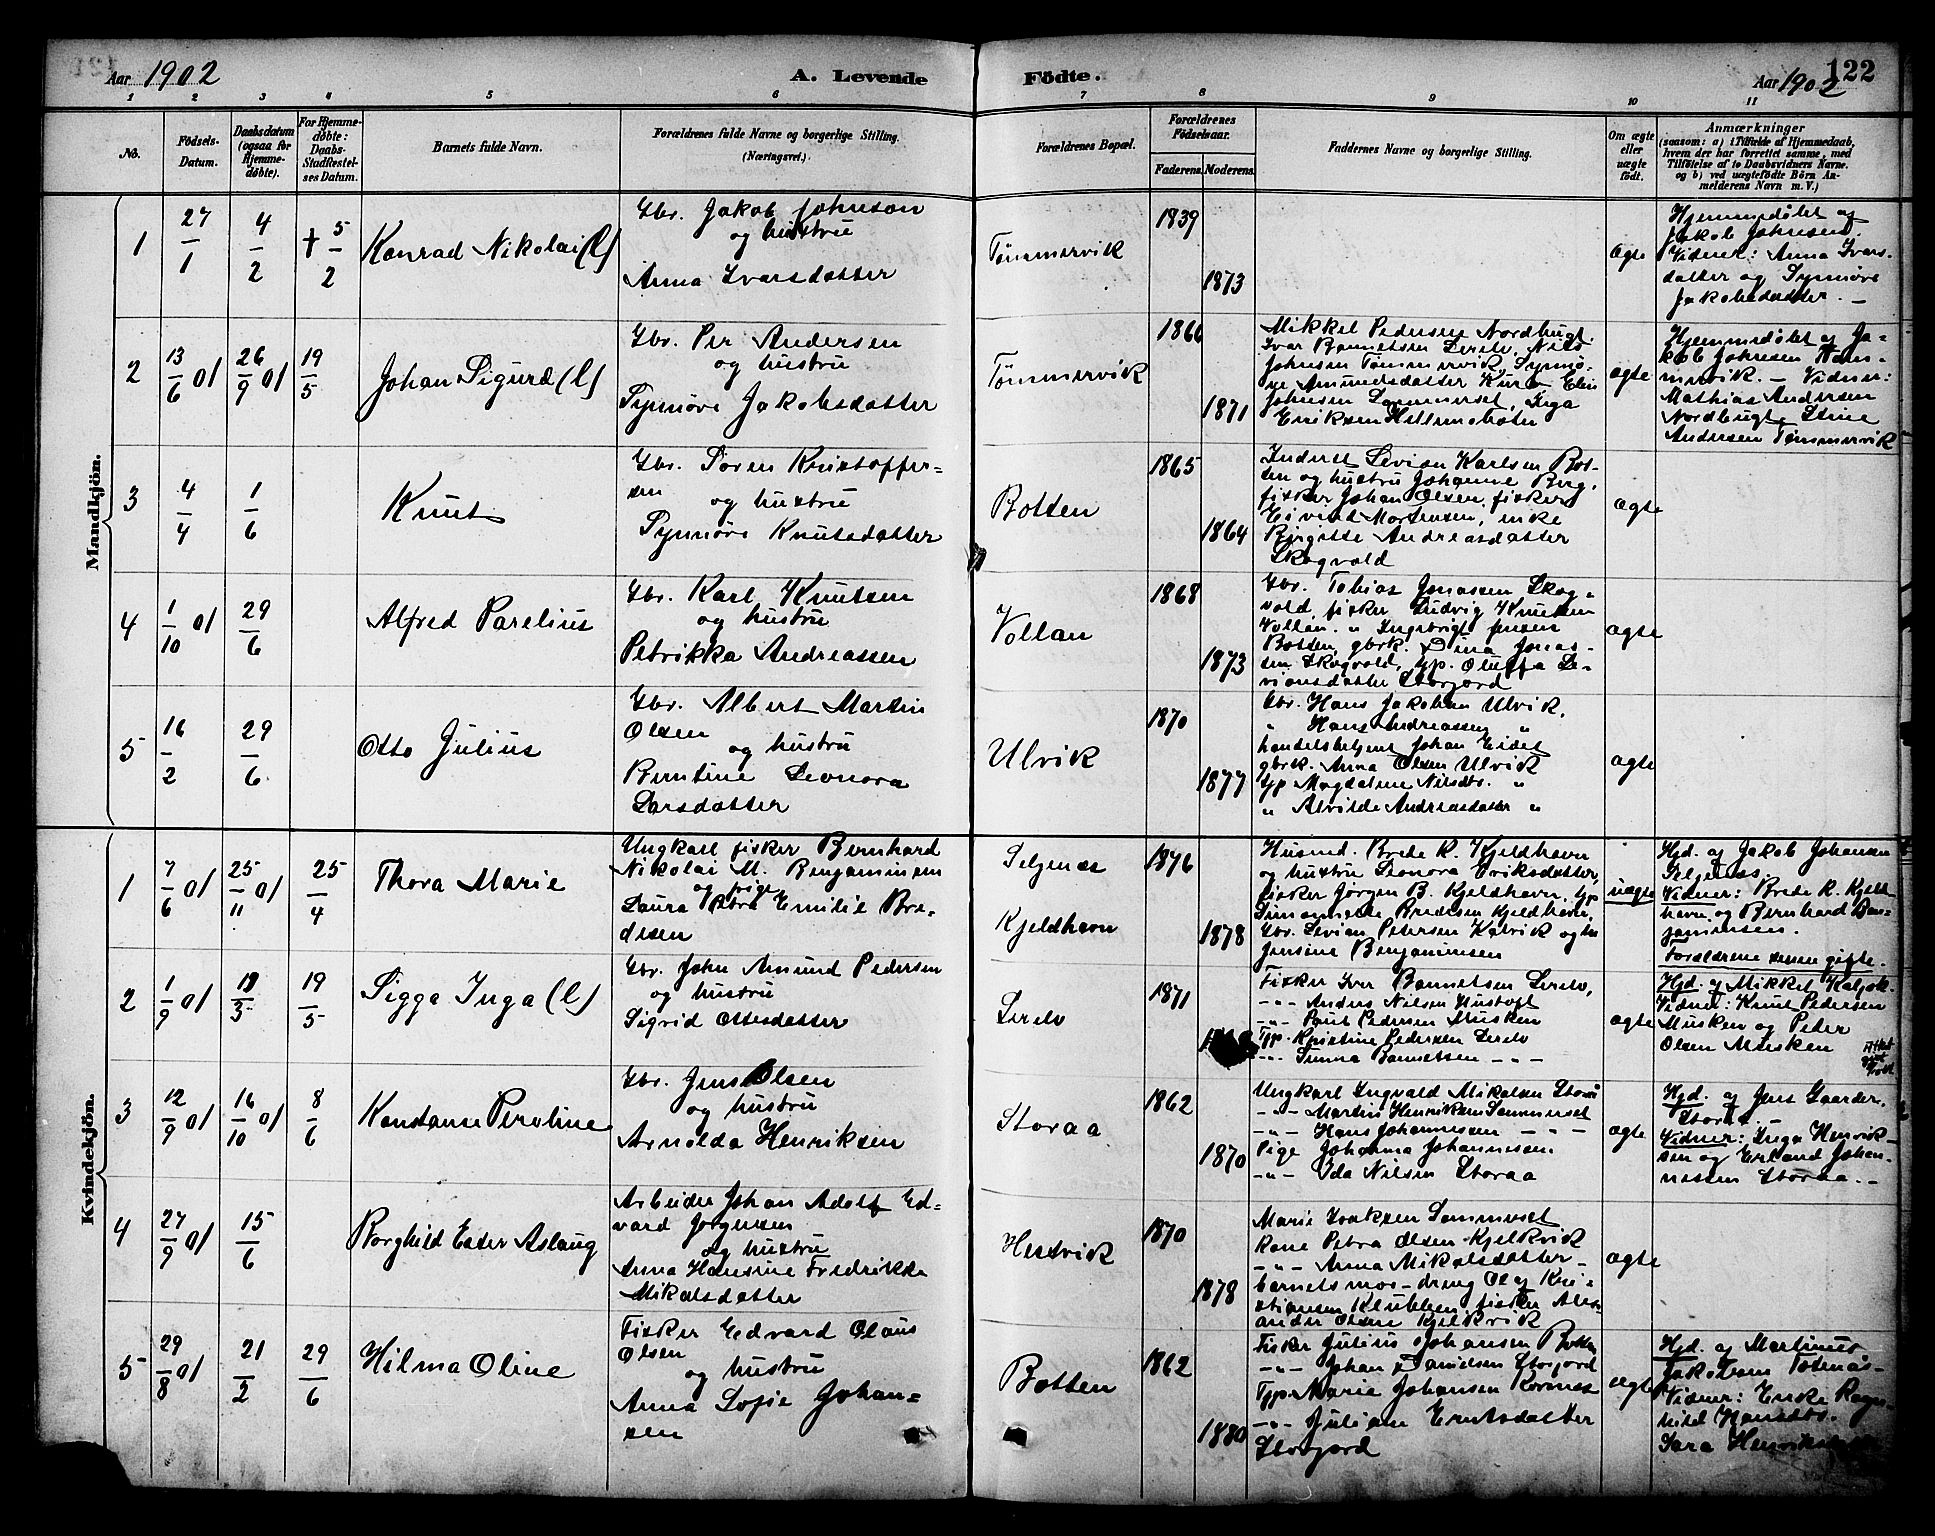 Aar 1902
A. Levende
Födte.
Aar 1902
122
1 2 3 4 5 6 7 8 9 10 11
No.
Födsels-
Datum.
Daabsdatum
(ogsaa for
Hjemme-
døbte).
For Hjemme-
døbte:
Daabs-
Stadfæstel-
ses Datum.
Barnets fulde Navn.
Forældrenes fulde Navne og borgerlige Stilling.
(Næringsvei.)
Forældrenes Bopæl.
Forældrenes
Födselsaar.
Faderens.
Moderens.
Faddernes Navne og borgerlige Stilling.
Om ægte
eller
uægte
födt.
Anmærkninger
(saasom: a) i Tilfælde af Hjemmedaab,
hvem der har forrettet samme, med
Tilføielse af to Daabsvidners Navne.
og b) ved uægtefödte Börn An-
melderens Navn m. V.)
Mandkjön.
1
27/1
4/2
+ 5/2
Konrad Nikolai (l)
Gbr. Jakob Johnson
og hustru
Anna Ivarsdatter
Tømmervik
1839
1873
ægte
Hjemmedøbt af
Jakob Johnsen.
Vidner: Anna Ivars-
datter og Synnøve
Jakobsdatter. —
2
13/6 01
26/9 01
19/5
Johan Sigurd (l)
Gbr. Per Andersen
og hustru
Synnøve Jakobsdatter
Tømmervik
1866
1871
Mikkel Pedersen Nordbugt
Ivar Danielsen Lerelv, Nils
Johnsen Tømmervik, Synnø-
ve Amundsdatter Kurs, Elen
Johnsen Sommerset, Inga
Eriksen Hellemobotn
ægte
Hjemmedøbt af Ja-
kob Johnsen Tøm-
mervik. — Vidner:
Mathias Andersen
Nordbugt Stine
Andersen Tømmervik
3
4/4
1/6
Knut
Gbr. Søren Kristoffer-
sen
og hustru
Synnøve Knutsdatter
Botten
1865
1864
Inderst Levian Karlsen Bot-
ten og hustru Johanne Berg,
fisker Johan Olsen, fisker
Eivind Mortensen, enke
Birgitte Andreasdatter
Skogvold
ægte
4
1/10 01
29/6
Alfred Parelius
Gbr. Karl Knutsen
og hustru
Petrikka Andreassen
Vollan
1868
1873
Gbr. Tobias Jonassen Skog-
vold, fisker Ludvig Knutsen
Vollan. " Ingebrigt Jensen
Botten, gbrk. Dina Jonas-
sen Skogvold, tjp. Oluffa Le-
viansdatter Storjord
ægte
5
16/2
29/6
Otto Julius
Gbr. Albert Martin
Olsen
og hustru
Berntine Leonora
Larsdatter
Ulvik
1870
1877
Gbr. Hans Jakobsen Ulvik,
" Hans Andreassen "
handelsbetjent Johan Eidet
gbrk. Anna Olsen Ulvik
tjp Magdalene Nilsdtr. "
" Alvilde Andreasdatter "
ægte
Kvindekjön.
1
7/6 01
25/11 01
25/4
Thora Marie
Ungkarl fisker Bernhard
Nikolai M. Benjaminsen
og pige
Laura Petra Emilie Bre-
desen
Selgenes
Kjeldhavn
1876
1878
Husmd. Brede R. Kjeldhavn
og hustru Leonora Eriksdatter,
fisker Jørgen B. Kjeldhavn, tjp
Simonette Bredesen Kjeldhavn,
Gbr. Levian Petersen Kalvik og hu
Jensine Benjaminsen
uægte
Hjd. af Jakob Johansen
Selgenes.
Vidner: Brede R. Kjeld
havn og Bernhard Ben-
jaminsen.
Forældrene senere gifte.
2
1/9 01
19/3
19/5
Sigga Inga (l)
Gbr. John Amund Pedersen
og hustru
Sigrid Ottesdatter
Lerelv
1871
Fisker Iver Danielsen Lerelv,
-"- Anders Nilsen Hustoft
-"- Paul Pedersen Musken
Tjp. Kristine Pedersen Lerelv
-"- Simna Danielsen -"-
ægte
Hjd. af Mikkel Kaljok.
Vidner: Knut Pedersen
Musken og Peder
Olsen Musken
3
12/9 01
16/10 01
8/6
Konstanse Peroline
Gbr. Jens Olsen
og hustru
Arnolda Henriksen
Storaa
1862
1870
Ungkarl Ingvald Mikalsen Storaa
-"- Martin Henriksen Sommerset
-"- Hans Johannesen -"-
Pige Johanna Johannesen
-"- Ida Nilsen Storaa
ægte
Hjd. af Jens Gaarder,
Storaa. —
Vidner: Inga Henrik-
sen og Erland Johan-
nessen Storaa. —
4
27/9 01
15/6
Borghild Ester Aslaug
Arbeider Johan Adolf Ed-
vard Jørgensen
og hustru
Anna Hansine Fredrikke
Mikalsdatter
Hestvik
1870
1878
Marie Isaksen Sommerset
Kone Petra Olsen Kjelkvik
-"- Anna Mikalsdatter -
barnets mor - dreng Olaf Kri-
stiansen Klubben, fisker Alex-
ander Olsen Kjelkvik
ægte
5
29/8 01
21/2
29/6
Hilma Oline
Fisker Edvard Olaus
Olsen
og hustru
Anna Sofie Johan-
sen
Botten
1862
1880
Fisker Julius Johansen Botten
-"- Johan Danielsen Storjord
Tjp. Marie Johansen Kornes
-"- Juliane Erntsdatter
Storjord
ægte
Hjd. af Martinus
Jakobsen Tømnes-
Vidner: Enke Ragn-
hild Hansdtr.
Sara Henriksdatter